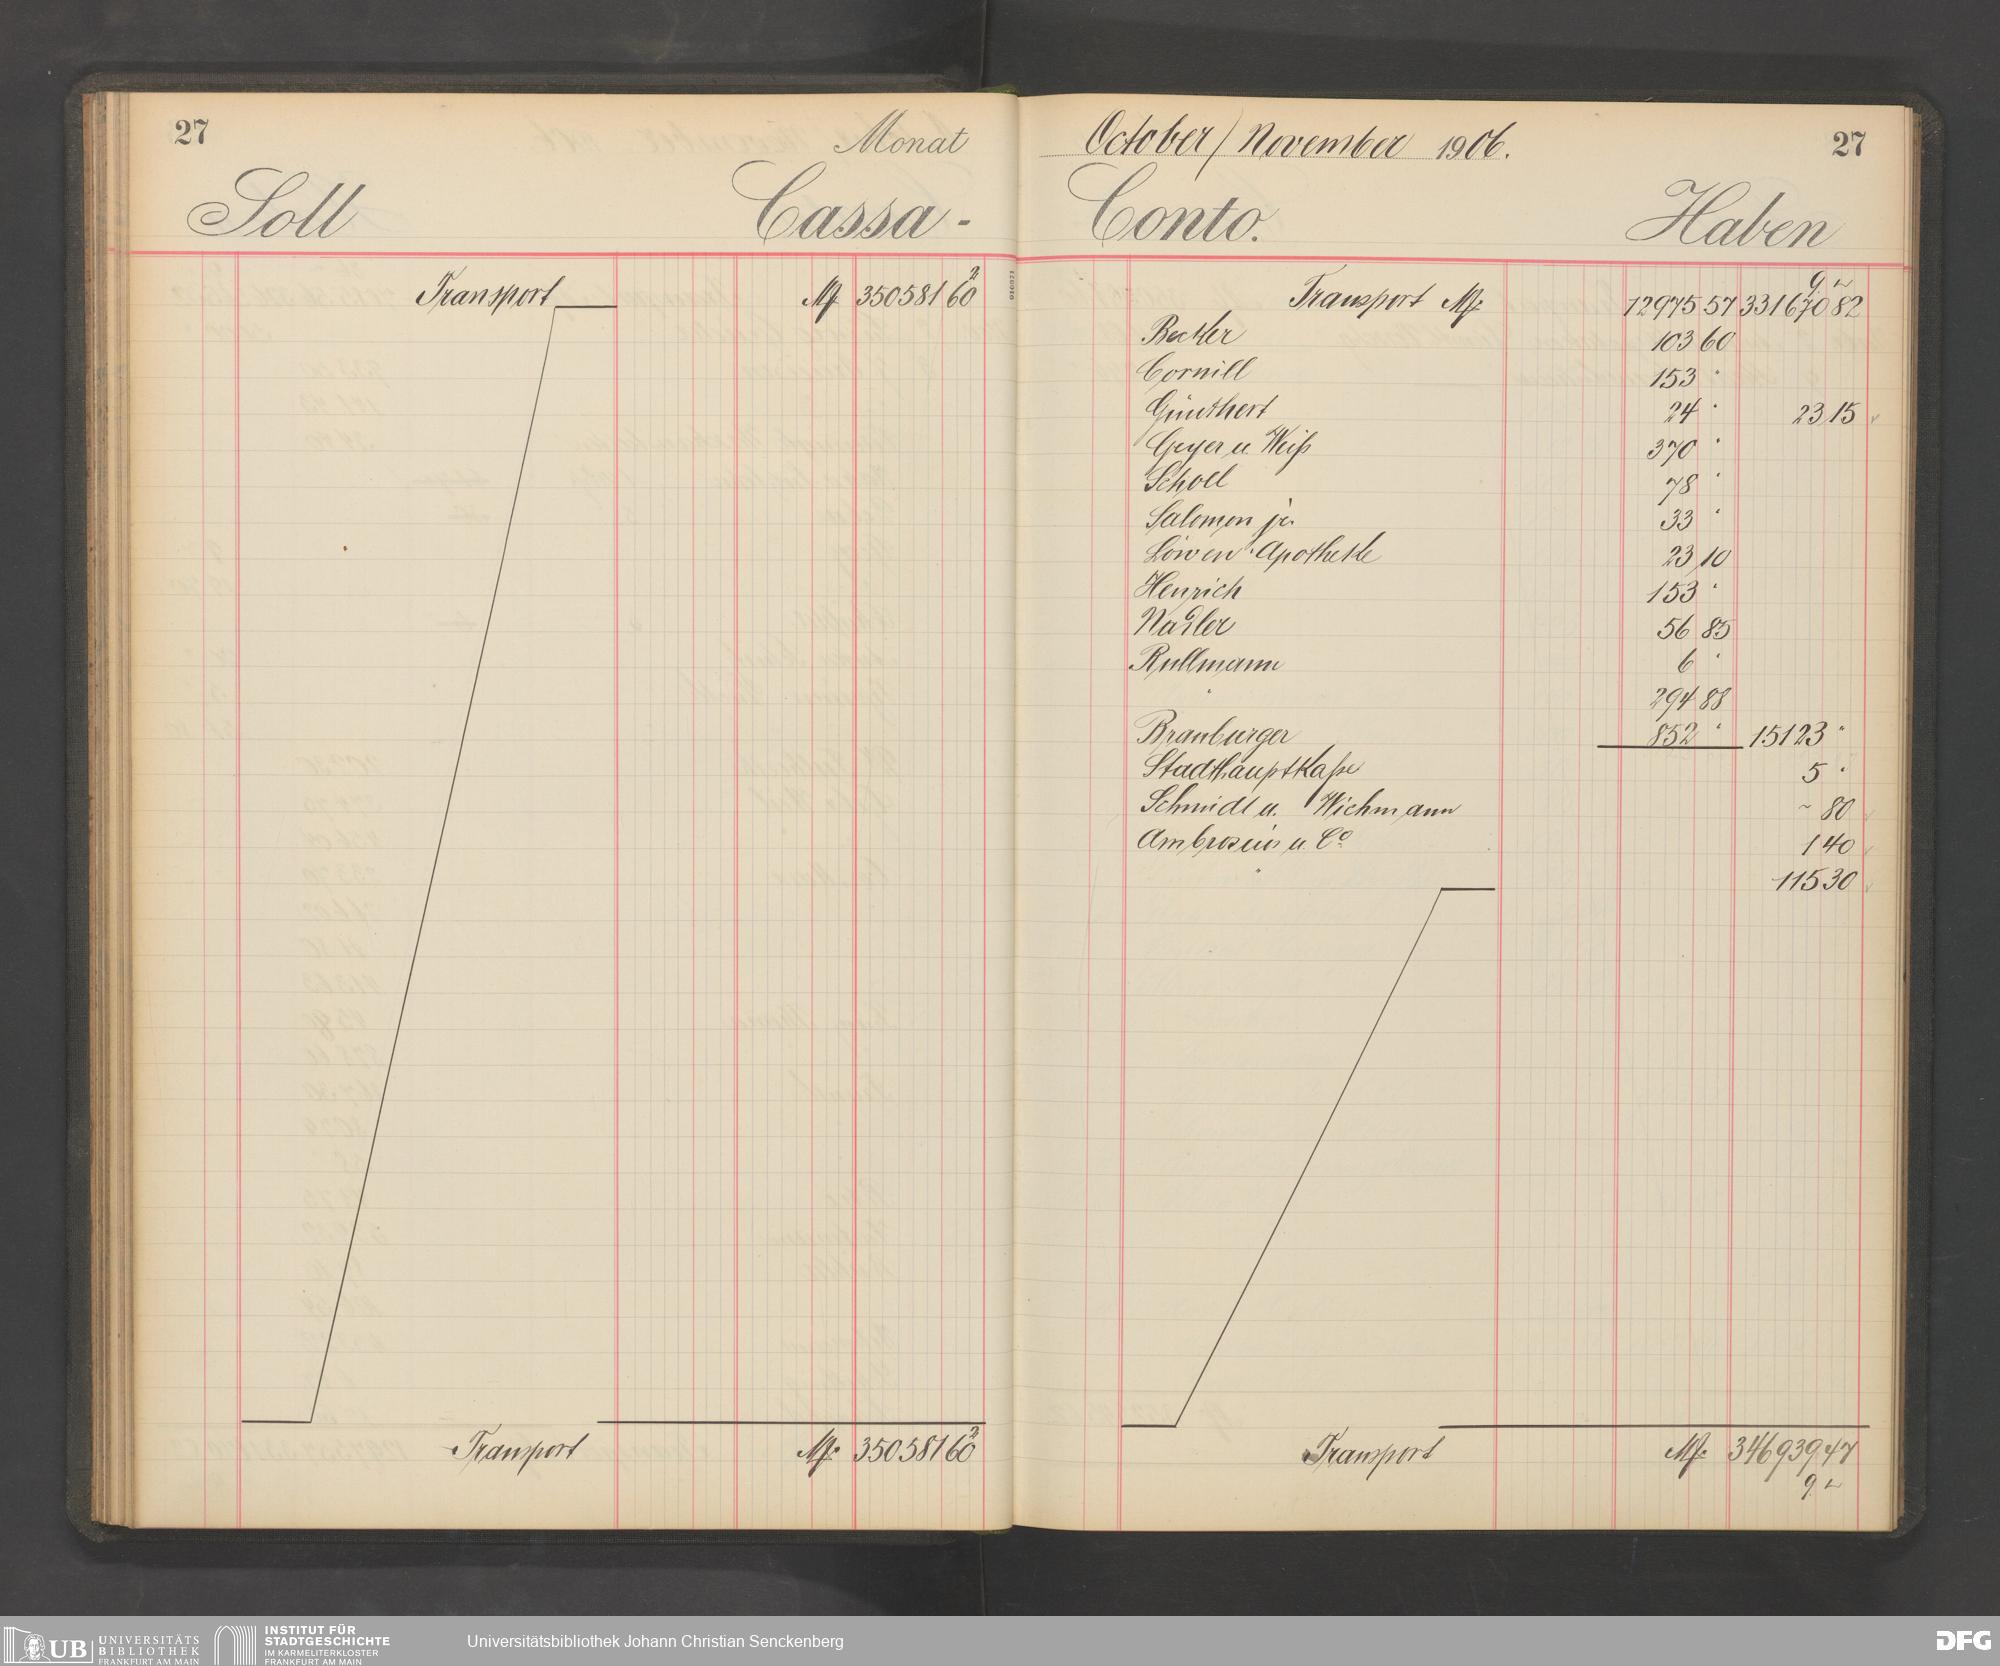 27
Monat
Soll
Cassa -
Transport M 350581 60
2
Transport M 350581 60
2
October / November 1906.
27
Conto.
Haben
9
Transport M 12975 57 331670 82
Becker 103 60
Cornill 153 "
Günthert 24 " 23 15
Geyer u. Weiß 370 "
Scholl 78 "
Salomon jr. 33 "
Löwen-Apotheke 23 10
Henrich 153 "
Nadler 56 85
Rullmann 6 "
" 294 88
Brauburger 852 " 15123 "
Stadthauptkaße 5 "
Schmidt u. Wichmann ~ 80
Ambrosius u. Co 1 40
" 115 30
Transport M 346939 47
9
UB UNIVERSITÄTS
BIBLIOTHEK
FRANKFURT AM MAIN
INSTITUT FÜR
STADTGESCHICHTE
IM KARMELITERKLOSTER
FRANKFURT AM MAIN
Universitätsbibliothek Johann Christian Senckenberg
DFG